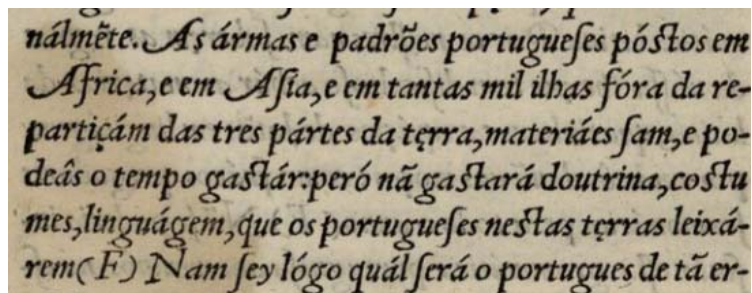 nálmẽte. As ármas e padrões portugueſes póſtos em
Africa, e em Aſia, e em tantas mil ilhas fóra da re-
partiçám das tres pártes da tęrra, materiáes ſam, e po-
deâs o tempo gaſtár: peró nã gaſtará doutrina, coſtu
mes, linguágem, que os portugueſes neſtas tęrras leixá-
rem (F) Nam ſey lógo quál ſerá o portugues de tã er-